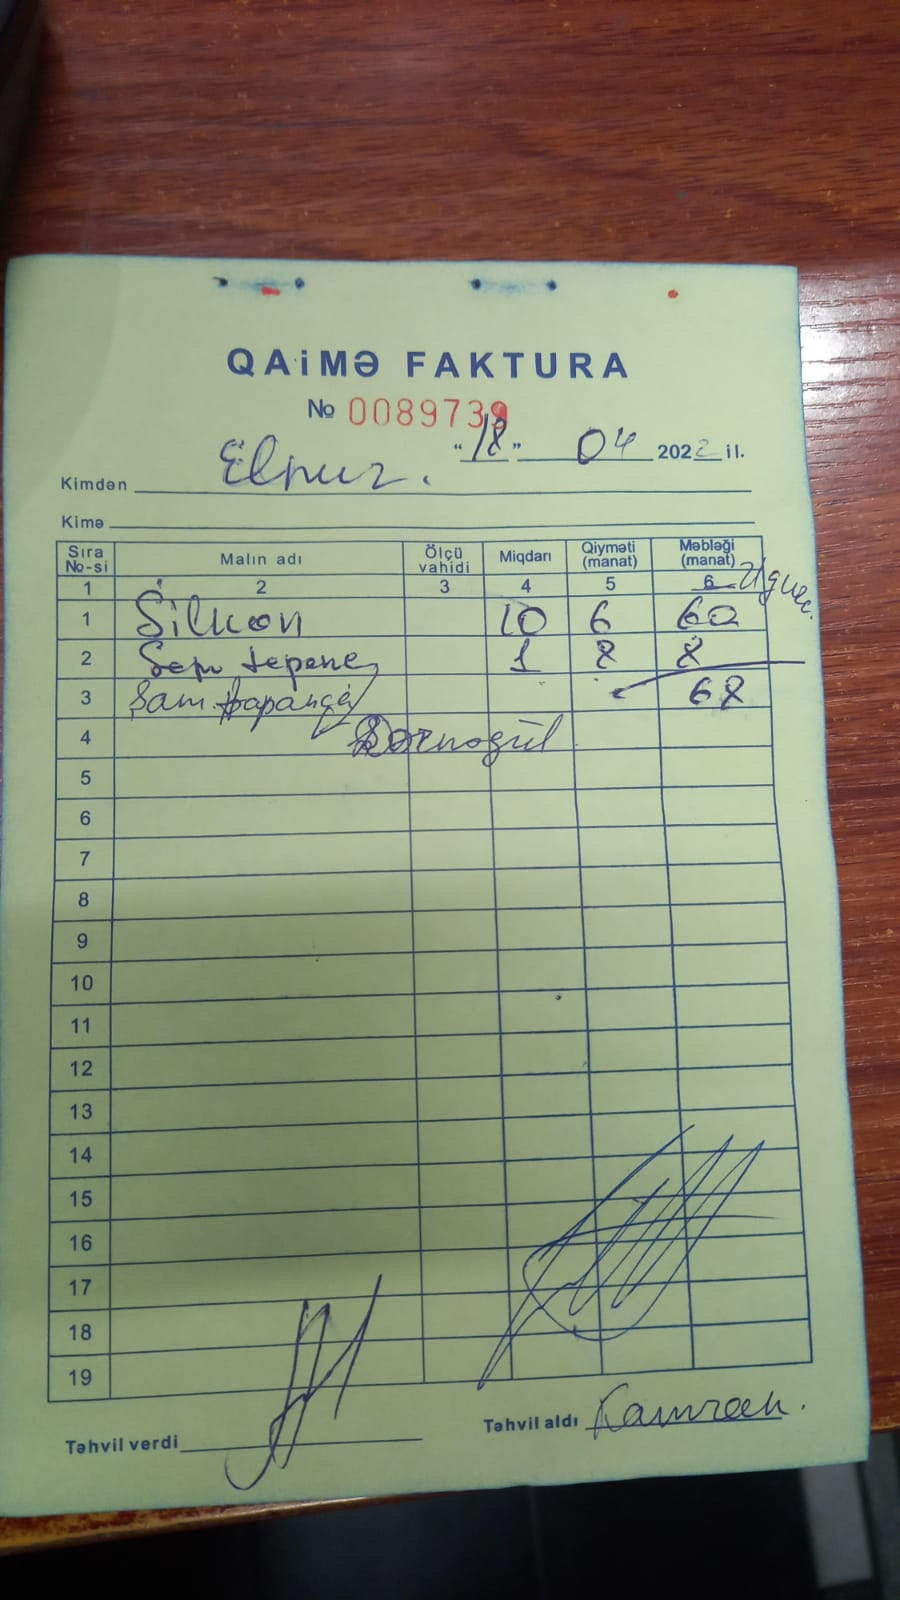 QAiMƏ FAKTURA
№ 0089739
"18" 04 2022 il.
Kimdən Elnur.
Kimə
Sıra №-si Malın adı Ölçü vahidi Miqdarı Qiyməti (manat) Məbləği (manat)
1 2 3 4 5 6
1 Silkon 10 6 60
2 Sem tepene 1 8 8
3 Şam 68
4
5
6
7
8
9
10
11
12
13
14
15
16
17
18
19
Təhvil verdi
Təhvil aldı Kamran.